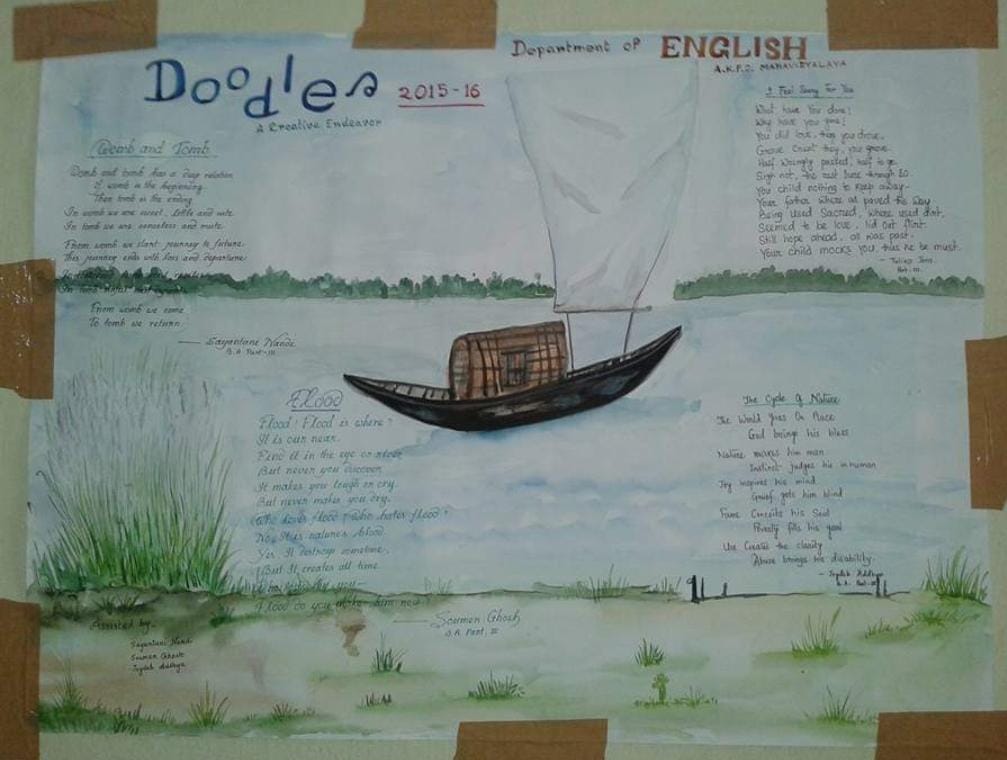 Doodles 2015-16
A Creative Endeavor
Department of ENGLISH
A.K.P.C. MAHAVIDYALAYA
Womb and Tomb
Womb and tomb has a deep relation
If womb is the beginning
Then tomb is the ending
In womb we are sweet, little and cute
In tomb we are senseless and mute.
From womb we start journey to future
This journey ends with loss and departure
From womb we come
To tomb we return
— Sayantani Nandi
B.A Part-III
I Feel Sorry For You
What have You done!
Why have you gone!
You did love, than you drove,
Grove they, you grove
Half wrongly packed, half to go.
Sigh not, the through so.
You child nothing to keep away-
Your father where as paved the way
Being Used Sacred, Whose used dirt.
Seemed to be love, lid out flirt.
Still hope ahead, all was past.
Your child mocks you, thus he be must.
Part. III
Flood
Flood! Flood is where?
It is our near.
Find it in the eye or river
But never you discover
It makes you laugh or cry.
But never makes you dry.
Who loves flood? who hates flood?
No It is natures blood
Yes. It destroys sometime,
But It creates all time
by you—
Flood do you make him new?
— Soumen Ghosh
B.A Part, III
The Cycle Of Nature
The World Goes On Place
God brings his bless
Nature makes him man
Instinct judges his inhuman
Joy inspires his mind
Grief gets him blind
Fame Conceits his Soul
Poverty fills his goal
Use Creates the clarity
Abuse brings his disability.
- Joydeb Addhya
B.A. Part-III
Assisted by..
Sayantani Nandi
Soumen Ghosh
Joydeb Addhya